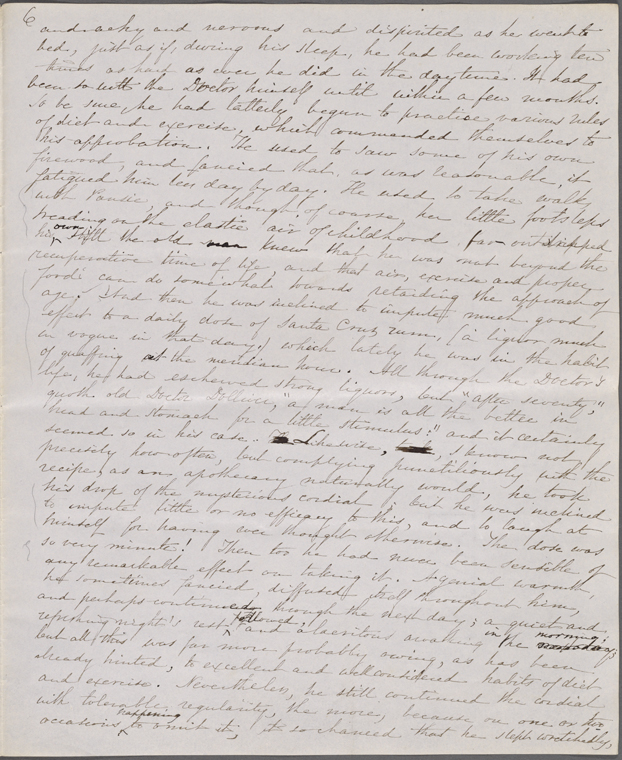 6
and achy and nervous and dispirited as he went to
bed, just as if, during his sleep, he had been working ten
times as hard as ever he did in the daytime. It had
been so with the Doctor himself until within a few months.
To be sure, he had latterly begun to practise various rules
of diet and exercise, which commended themselves to
his approbation. He used to saw some of his own
firewood, and fancied that, as was reasonable, it
fatigued him less day by day. He used to take walks
with Pansie, and though, of course, her little footsteps
treading on the elastic air of childhood far outstripped
his own, still the old man knew that he was not beyond the
recuperative time of life, and that air, exercise and proper
food can do somewhat towards retarding the approach of
age. And then he was inclined to impute much good
effect to a daily dose of Santa Cruz rum, (a liquor much
in vogue in that day,) which lately he was in the habit
of quaffing at the meridian hour. All through the Doctor's
life, he had eschewed strong liquors, but "after seventy,"
quoth old Doctor Dolliver, "a man is all the better in
head and stomach for a little stimulus:" and it certainly
seemed so in his case. Likewise, I know not
precisely how often, but complying punctiliously with the
recipe, as an apothecary naturally would, he took
his drop of the mysterious cordial; but he was inclined
to impute little or no efficacy to this, and to laugh at
himself for having ever thought otherwise. The dose was
so very minute! Then too he had never been sensible of
any remarkable effect on taking it. A genial warmth,
he sometimes fancied, diffused itself throughout him,
and perhaps continued through the next day; a quiet and
refreshing night's rest followed, and alacritous awaking in the morning;
but all this was far more probably owing, as has been
already hinted, to excellent and well considered habits of diet
and exercise. Nevertheless, he still continued the cordial
with tolerable regularity, the more, because on one or two
occasions happening to omit it, it so chanced that he slept wretchedly,